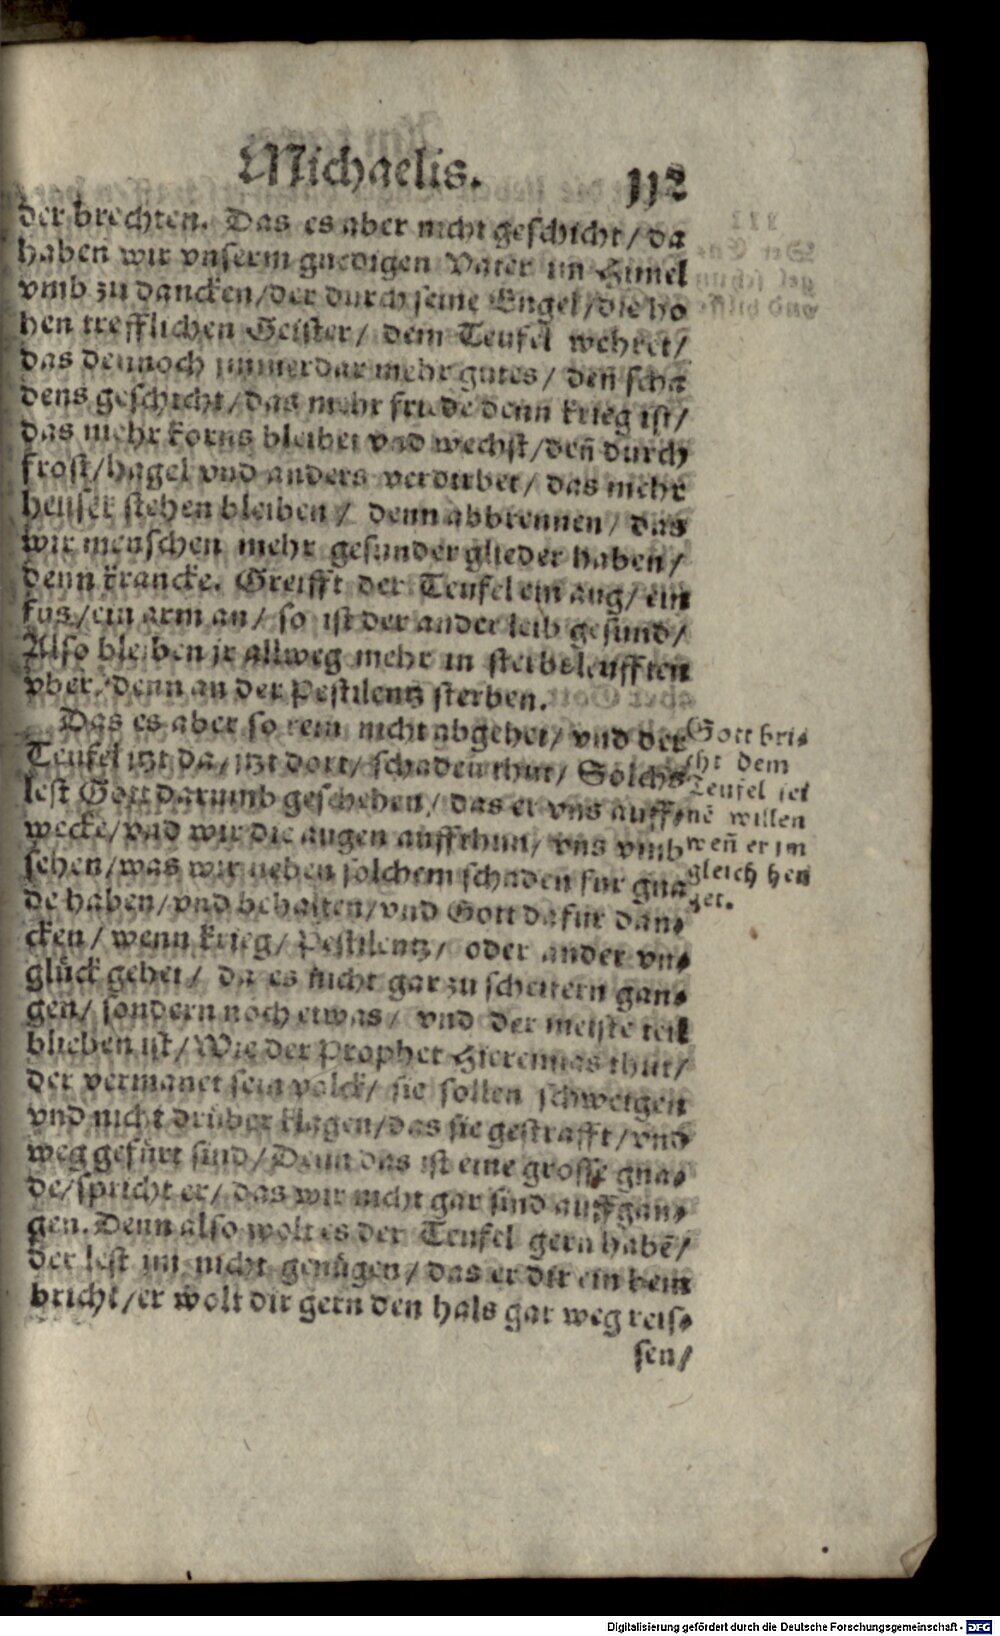 Michaelis. 112
der brechten. Das es aber nicht geschicht/ da
haben wir vnserm gnedigen Vater im Himel
vmb zu dancken/der durch seine Engel/die ho
hen trefflichen Geister/ dem Teufel wehret/
das dennoch jmmerdar mehr gutes/ deñ scha
dens geschicht/das mehr friede denn krieg ist/
das mehr korns bleibet vnd wechst/deñ durch
frost/hagel vnd anders verdirbet/ das mehr
heuser stehen bleiben/ denn abbrennen/ das
wir menschen mehr gesunder glieder haben/
denn krancke. Greifft der Teufel ein aug/ ein
fus/ein arm an/ so ist der ander leib gesund/
Also bleiben jr allweg mehr in sterbeleufften
vber/ denn an der Pestilentz sterben.
Das es aber so rein nicht abgehet/ vnd der
Teufel itzt da/itzt dort/ schaden thut/ Solchs
lest Gott darumb geschehen/ das er vns auff-
wecke/vnd wir die augen auffthun/ vns vmb
sehen/was wir neben solchem schaden fur gna
de haben/vnd behalten/vnd Gott dafur dan-
cken/ wenn krieg/ Pestilentz/ oder ander vn-
glück gehet/ da es nicht gar zu scheitern gan-
gen/ sondern noch etwas/ vnd der meiste teil
blieben ist/Wie der Prophet Hieremias thut/
der vermanet sein volck/ sie sollen schweigen
vnd nicht drüber klagen/das sie gestrafft/vnd
weg gefürt sind/Denn das ist eine grosse gna-
de/spricht er/ das wir nicht gar sind auffgan-
gen. Denn also wolt es der Teufel gern habē/
der lest im nicht genügen/ das er dir ein bein
bricht/er wolt dir gern den hals gar weg reis-
sen/
Gott bri-
cht dem
Teufel sei
nē willen
weñ er im
gleich hen
get.
Digitalisierung gefördert durch die Deutsche Forschungsgemeinschaft - DFG